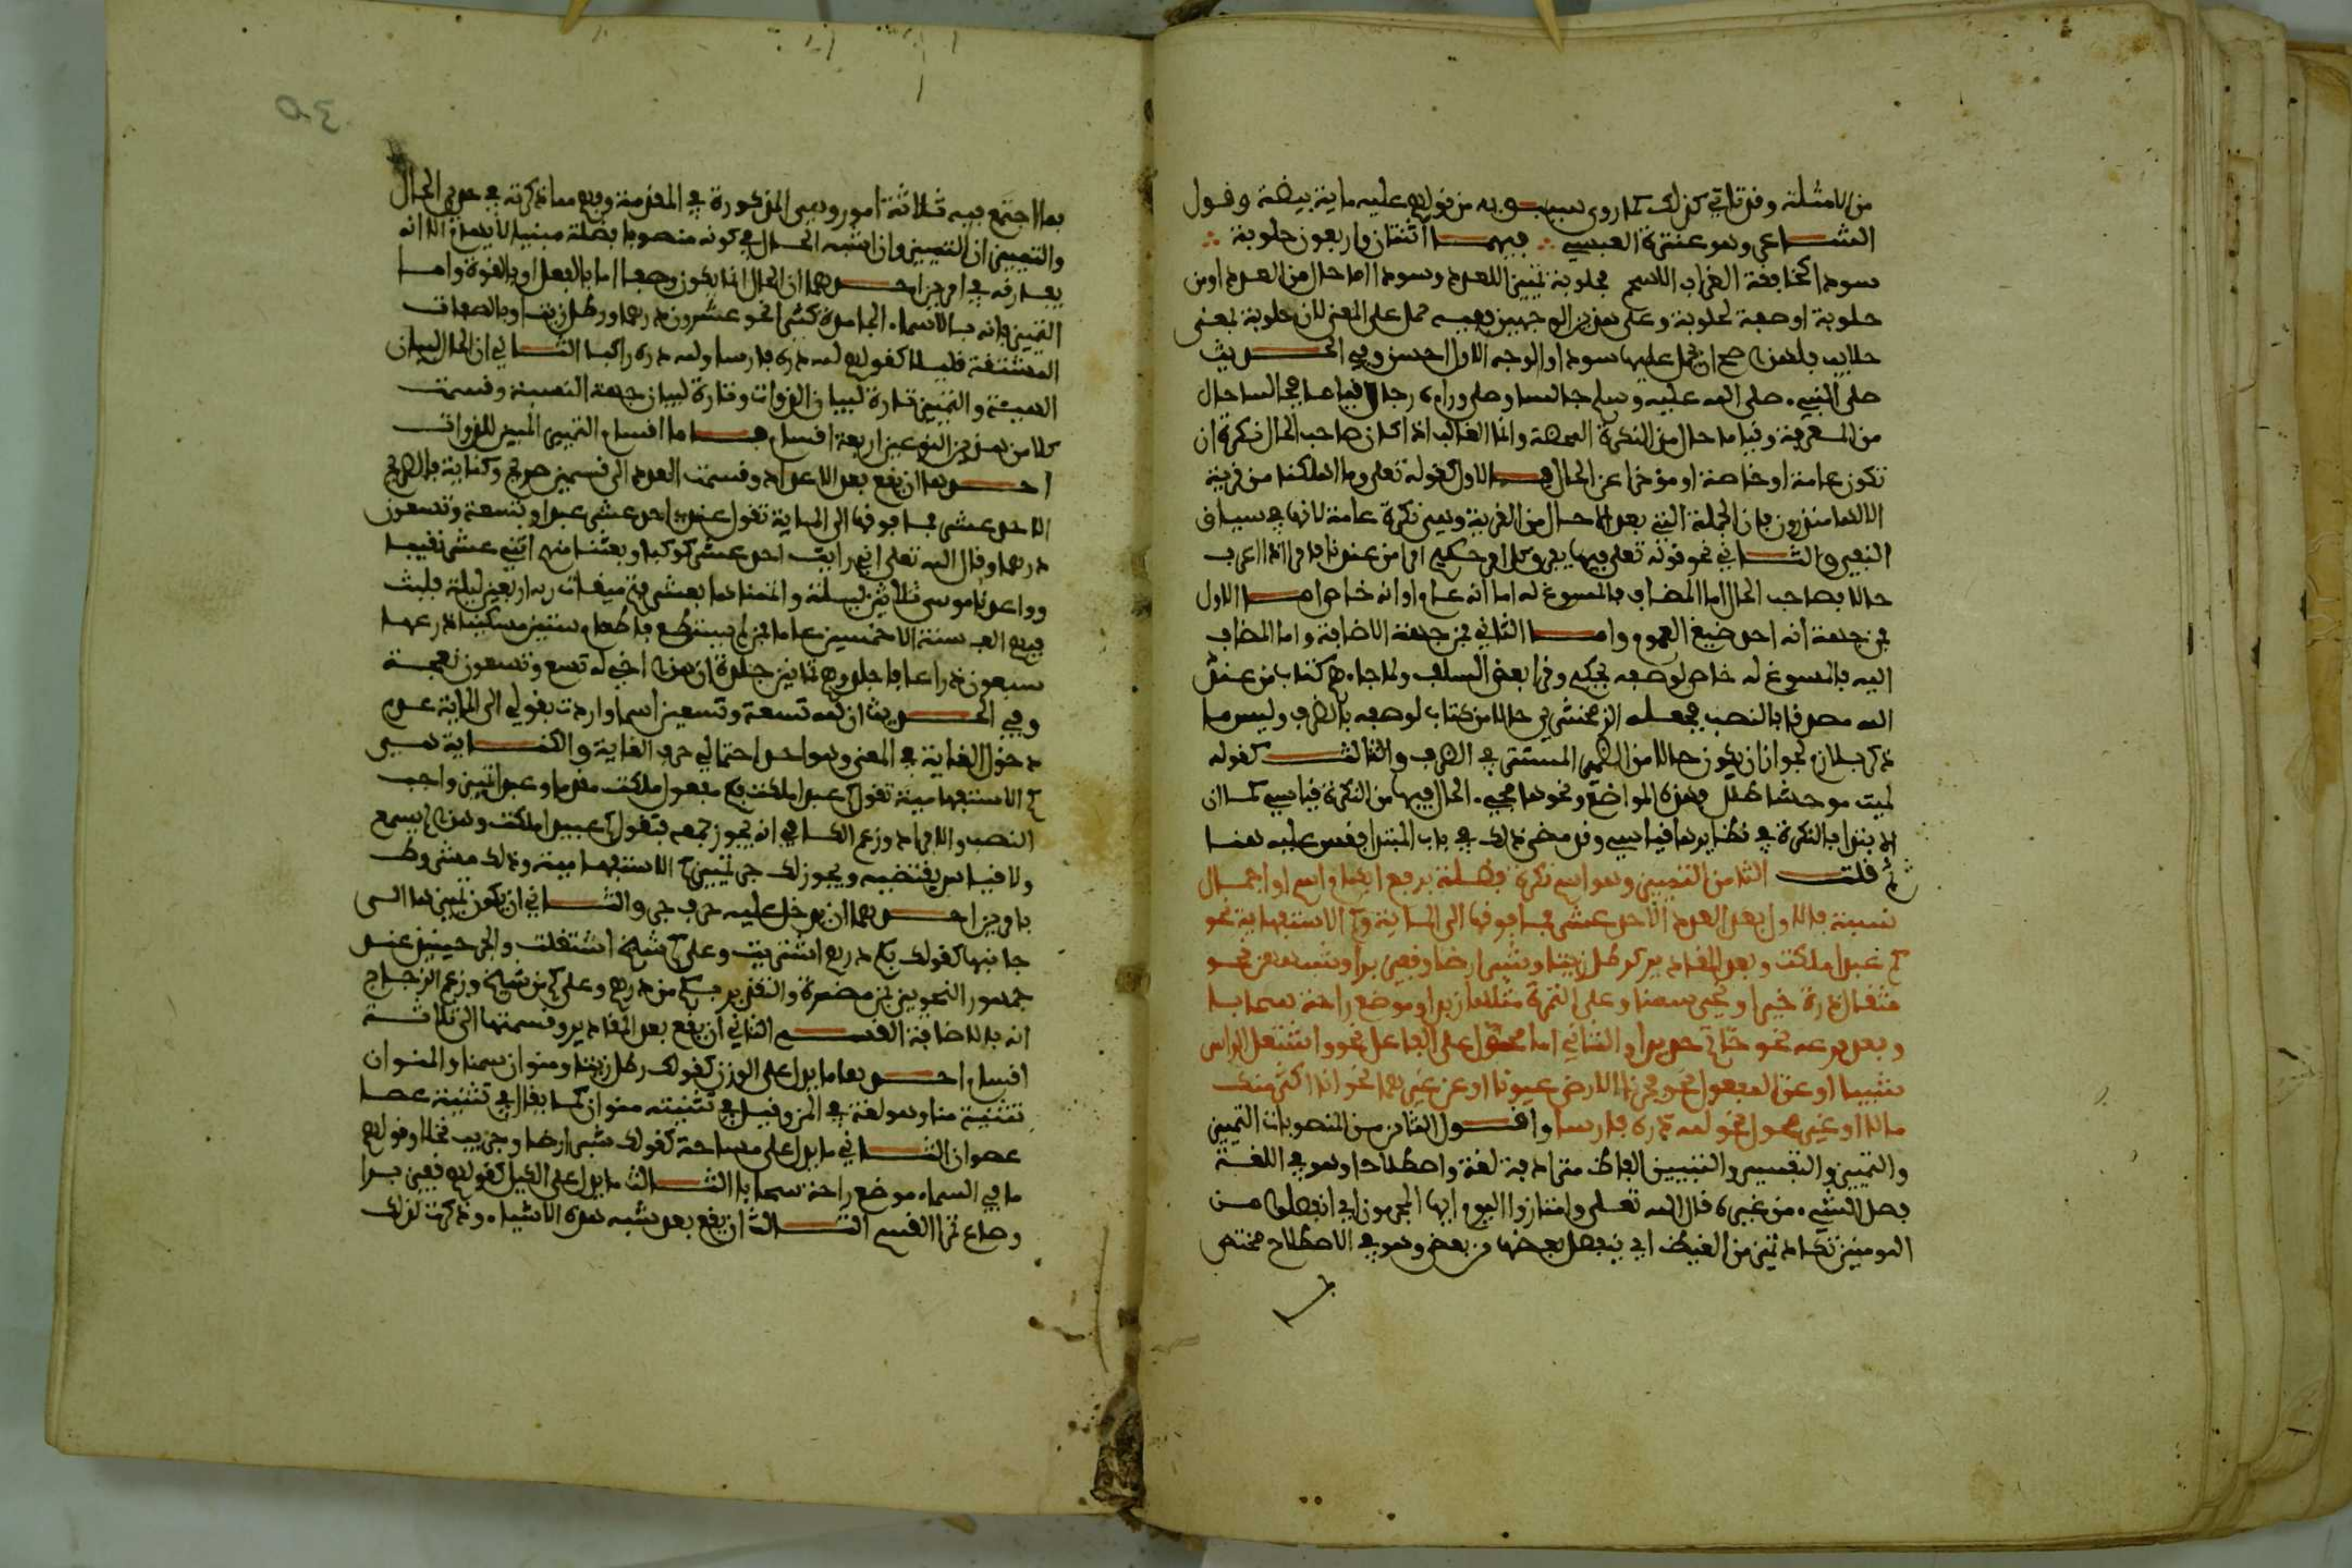 من الامثلة وقد تاتي كذلك كما روى سيبويه من قولهم عليه ماية بيضة وقول
الشاعر وهو عنترة العبسي ∴ فيهما اثنتان واربعون حلوبة ∴
سودا كخافية الغراب الاسحم فحلوبة تمييز للعدد وسودا اما حال من العدد او من
حلوبة او صفة لحلوبة وعلى هذين الوجهين ففيه حمل على المعنى لان حلوبة بمعنى
حلايب فلهذا صح ان يحمل عليها سودا والوجه الاول احسن وفي الحديث
صلى النبيء صلى الله عليه وسلم جالسا وصلى وراءه رجال قياما فجالسا حال
من المعرفة وقياما حال من النكرة المحضة وانما الغالب اذا كان صاحب الحال نكرة ان
تكون عامة او خاصة او مؤخرا عن الحال فالاول كقوله تعلى وما اهلكنا من قرية
الا لها منذرون فان الجملة التي بعد الا حال من القرية وهي نكرة عامة لانها في سياق
النفي والثاني نحو قوله تعلى فيها يفرق كل امر حكيم امرا من عندنا فامرا اذا اعرب
حالا فصاحب الحال اما المضاف فالمسوغ له اما انه عام او انه خاص اما الاول
فمن جهة انه احد صيغ العموم واما الثاني فمن جهة الاضافة واما المضاف
اليه فالمسوغ له خاص لوصفه بحكيم وقرا بعض السلف ولما جاءهم كتاب من عند
الله مصدقا بالنصب فجعله الزمخشري حالا من كتاب لوصفه بالظرف وليس ما
ذكر بلازم لجواز ان يكون حالا من الضمير المستتر في الظرف والثالث كقوله
لمية موحشا طلل فهذه المواضع ونحوها مجيء الحال فيها من النكرة قياسي كما ان
الابتدا بالنكرة في نظايرها قياسي وقد مضى ذلك في باب المبتدا فقس عليه هنا
ثم قلت الثامن التمييز وهو اسم نكرة فضلة يرفع ابهام اسم او اجمال
نسبة فالاول بعد العدد الاحد عشر فما فوقها الى الماية وكم الاستفهامية نحو
كم عبدا ملكت وبعد المقادير كرطل زيتا وشبر ارضا وقفيز برا وشبههن نحو
مثقال ذرة خيرا ونحي سمنا وعلى التمرة مثلها زبدا وموضع راحة سحابا
وبعد فرعه نحو خاتم حديدا والثاني اما محول على الفاعل نحو واشتعل الراس
شيبا او عن المفعول نحو فجرنا الارض عيونا او عن غيرهما نحو انا اكثر منك
مالا او غير محول نحو لله دره فارسا واقول الثامن من المنصوبات التمييز
والتمييز والتفسير والتبيين الفاظ مترادفة لغة واصطلاحا وهو في اللغة
فصل الشيء من غيره قال الله تعلى وامتازوا اليوم ايها المجرمون اي انفصلوا من
المومنين تكاد تميز من الغيظ اي ينفصل بعضها من بعض وهو في الاصطلاح مختص
30
بما اجتمع فيه ثلاثة امور وهي المذكورة في المقدمة وفهم مما ذكرته في حدي الحال
والتمييز ان التمييز وان اشبه الحال في كونه منصوبا فضلة مبينا لابهام الا انه
يفارقه في امرين احدهما ان الحال انما يكون وصفا اما بالفعل او بالقوة واما
التمييز فانه بالاسماء الجامدة كثيرا نحو عشرون درهما ورطل زيتا وبالصفات
المشتقة قليلا كقولهم لله دره فارسا ولله دره راكبا الثاني ان الحال لبيان
الهيئة والتمييز تارة لبيان الذوات وتارة لبيان جهة النسبة وقسمت
كلا من هذين النوعين اربعة اقسام فاما اقسام التمييز المبين للذوات
احدها ان يقع بعد الاعداد وقسمت العدد الى قسمين صريح وكناية فالصريح
الاحد عشر فما فوقها الى الماية تقول عندي احد عشر عبدا وتسعة وتسعون
درهما وقال الله تعلى اني رايت احد عشر كوكبا وبعثنا منهم اثني عشر نقيبا
وواعدنا موسى ثلاثين ليلة واتممناها بعشر فتم ميقات ربه اربعين ليلة فلبث
فيهم الف سنة الا خمسين عاما فمن لم يستطع فاطعام ستين مسكينا ذرعها
سبعون ذراعا فاجلدوهم ثمانين جلدة ان هذا اخي له تسع وتسعون نعجة
وفي الحديث ان لله تسعة وتسعين اسما واردت بقولي الى الماية عدم
دخول الغاية في المغيى وهو احد احتمالي حرف الغاية والكناية هي
كم الاستفهامية تقول كم عبدا ملكت فكم مفعول ملكت مقدما وعبدا تمييز واجب
النصب والافراد وزعم الكوفي انه يجوز جمعه فتقول كم عبيدا ملكت وهذا لم يسمع
ولا قياس يقتضيه ويجوز لك جر تمييز كم الاستفهامية وذلك مشروط
بامرين احدهما ان يدخل عليه حرف جر والثاني ان يكون تمييزها الى
جانبها كقولك بكم درهم اشتريت وعلى كم شيخ اشتغلت والجر حينيذ عند
جمهور النحويين بمن مضمرة والتقدير بكم من درهم وعلى كم من شيخ وزعم الزجاج
انه بالاضافة القسم الثاني ان يقع بعد المقادير وقسمتها الى ثلاثة
اقسام احدها ما يدل على الوزن كقولك رطل زيتا ومنوان سمنا والمنوان
تثنية منا وهو لغة في المن وقيل في تثنيته منوان كما يقال في تثنية عصا
عصوان الثاني ما يدل على مساحة كقولك شبر ارضا وجريب نخلا وقولهم
ما في السماء موضع راحة سحابا الثالث ما يدل على الكيل كقولهم قفيز برا
وصاع تمرا القسم الثالث ان يقع بعد شبه هذه الاشياء وذكرت لذلك